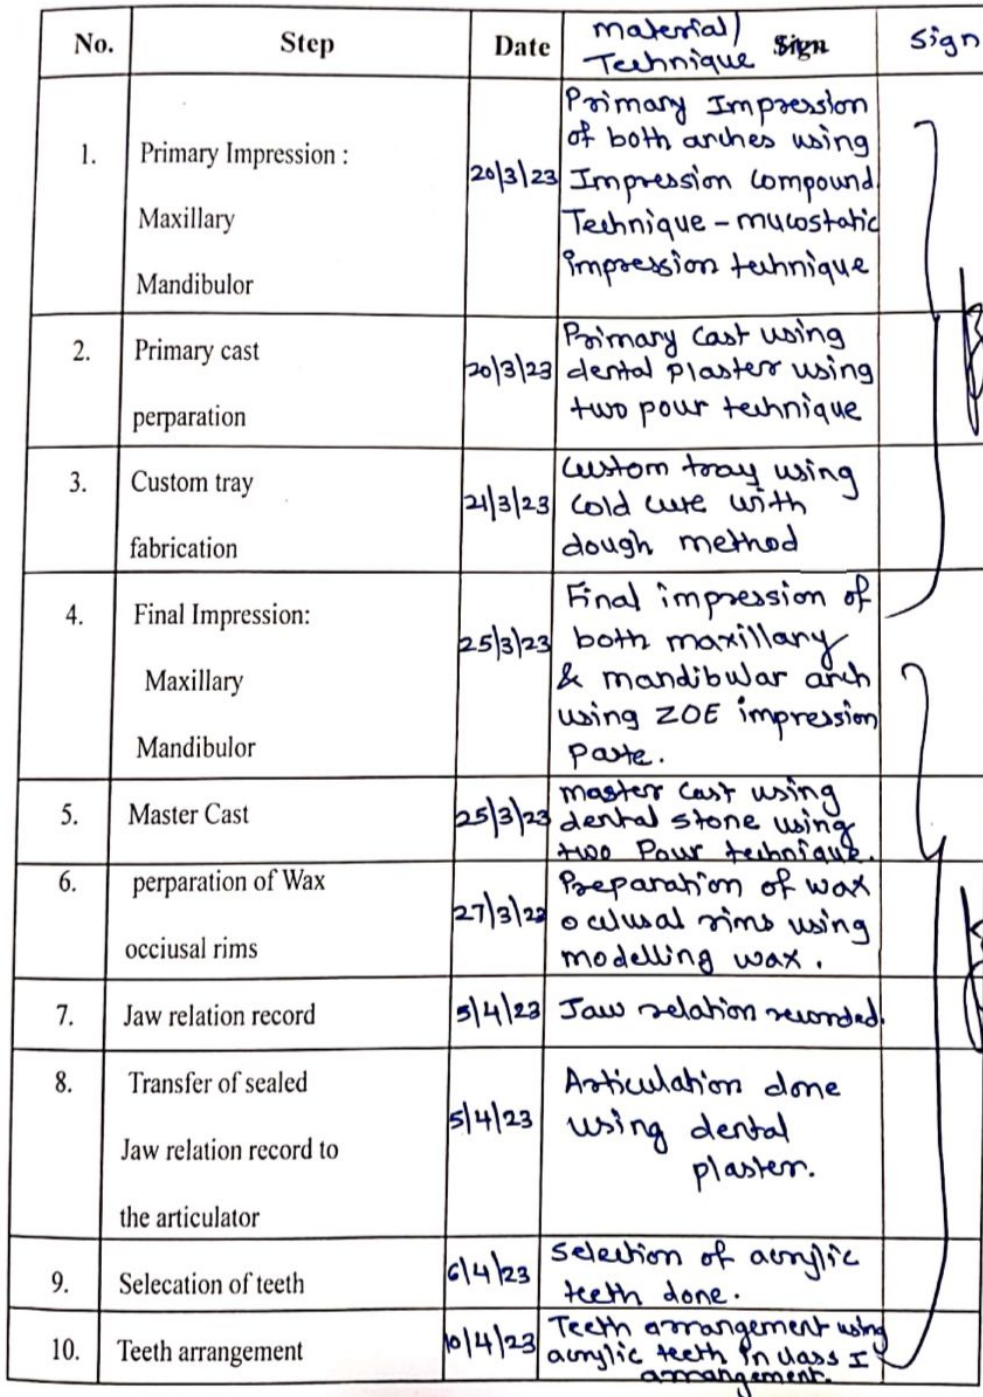 No. Step Date Material/ Sign Sign
Technique
1. Primary Impression :
Maxillary
Mandibulor
20/3/23
Primary Impression
of both arches using
Impression compound
Technique - mucostatic
impression technique
2. Primary cast
perparation
20/3/23
Primary cast using
dental plaster using
two pour technique
3. Custom tray
fabrication
21/3/23
custom tray using
cold cure with
dough method
4. Final Impression:
Maxillary
Mandibulor
25/3/23
Final impression of
both maxillary
& mandibular arch
using ZOE impression
paste.
5. Master Cast
25/3/23
master cast using
dental stone using
two Pour technique.
6. perparation of Wax
occiusal rims
27/3/23
Preparation of wax
occlusal rims using
modelling wax.
7. Jaw relation record
5/4/23
Jaw relation recorded.
8. Transfer of sealed
Jaw relation record to
the articulator
5/4/23
Articulation done
using dental
plaster.
9. Selecation of teeth
6/4/23
selection of acrylic
teeth done.
10. Teeth arrangement
10/4/23
Teeth arrangement using
acrylic teeth in class I
arrangement.